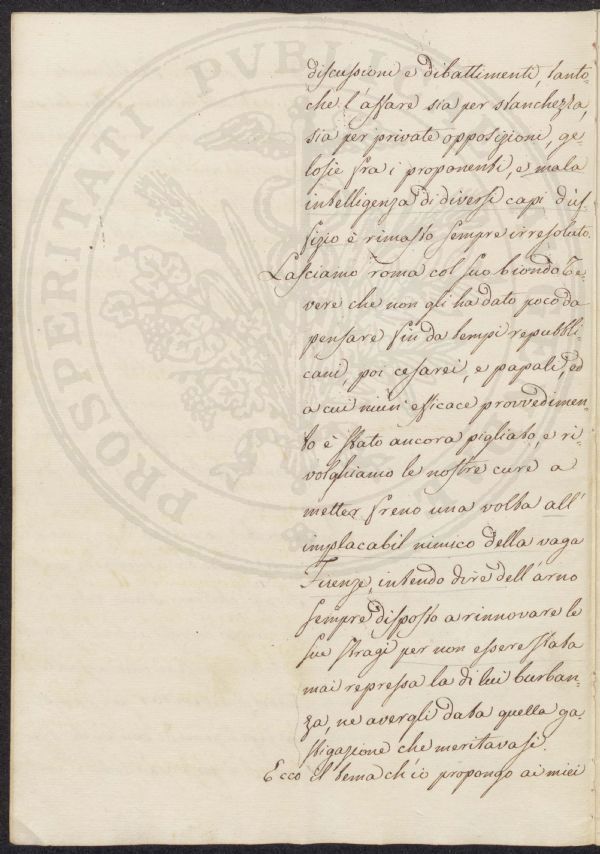 discussioni e dibattimenti, tanto
che l'affare sia per stanchezza,
sia per private opposizioni, ge-
losie fra i proponenti, e mala
intelligenza di diversi capi d'uf-
fizio è rimasto sempre irresoluto.
Lasciamo roma col suo biondo Te-
vere che non gli ha dato poco da
pensare fin da tempi repubbli-
cani, poi cesarei, e papali, ed
a cui niun efficace provvedimen-
to è stato ancora pigliato, e ri-
volghiamo le nostre cure a
metter freno una volta all'
implacabil nimico della vaga
Firenze, intendo dire dell'arno
sempre disposto a rinnovare le
sue stragi per non essere stata
mai repressa la di lui burban-
za, ne avergli data quella ga-
stigazione che meritavasi.
Ecco il tema ch'io propongo ai miei
PROSPERITATI PUBLICAE